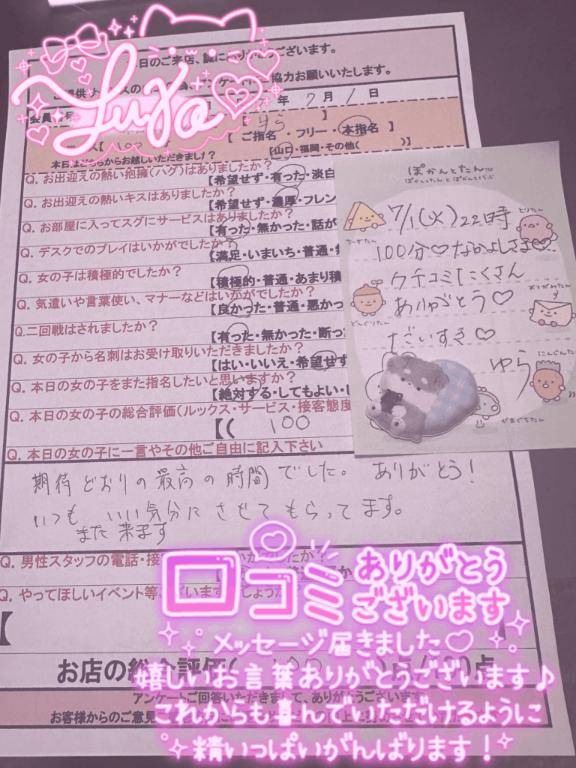 日のご来店、誠に
ございます。
協力お願いいたします。
年 7月 1日
Yura
ゆら
【ご指名・フリー・本指名
本日はどちらからお越しいただきましたか?
【山口・福岡・その他(
Q. お出迎えの熱い抱擁(ハグ)はありましたか?
【希望せず・有った・淡白
Q. お出迎えの熱いキスはありましたか?
【希望せず・濃厚・フレン
Q. お部屋に入ってスグにサービスはありましたか?
【有った・無かった・話が
Q. デスクでのプレイはいかがでしたか?
【満足・いまいち・普通・
Q. 女の子は積極的でしたか?
【積極的・普通・あまり積
Q. 気遣いや言葉使い、マナーなどはいかがでしたか?
【良かった・普通・悪かっ
Q.二回戦はされましたか?
【有った・無かった・断っ
Q. 女の子から名刺はお受け取りいただきましたか?
【はい・いいえ・希望せず
Q. 本日の女の子をまた指名したいと思いますか?
【絶対する・してもよい・
Q. 本日の女の子の総合評価(ルックス・サービス・接客態度
【( 100
Q. 本日の女の子に一言やその他ご自由に記入下さい
期待どおりの最高の時間でした。 ありがとう!
いつも いい気分に させてもらってます。
また来ます
Q. 男性スタッフの電話・接
Q. やってほしいイベント等
お店の総合評価(
点
アンケートご回答いただきまして、ありがとうございます
お客様からのご意見
ぽかんとたん
7/1(火)22時
100分♡なかよしさま♡
クチコミたくさん
ありがとう♡
だいすき♡
ゆら
とりたん
どんぐりたん
おてがみたん
にんじんたん
口コミ
ありがとう
ございます
メッセージ届きました♡
嬉しいお言葉ありがとうございます♪
これからも喜んでいただけるように
精いっぱいがんばります!